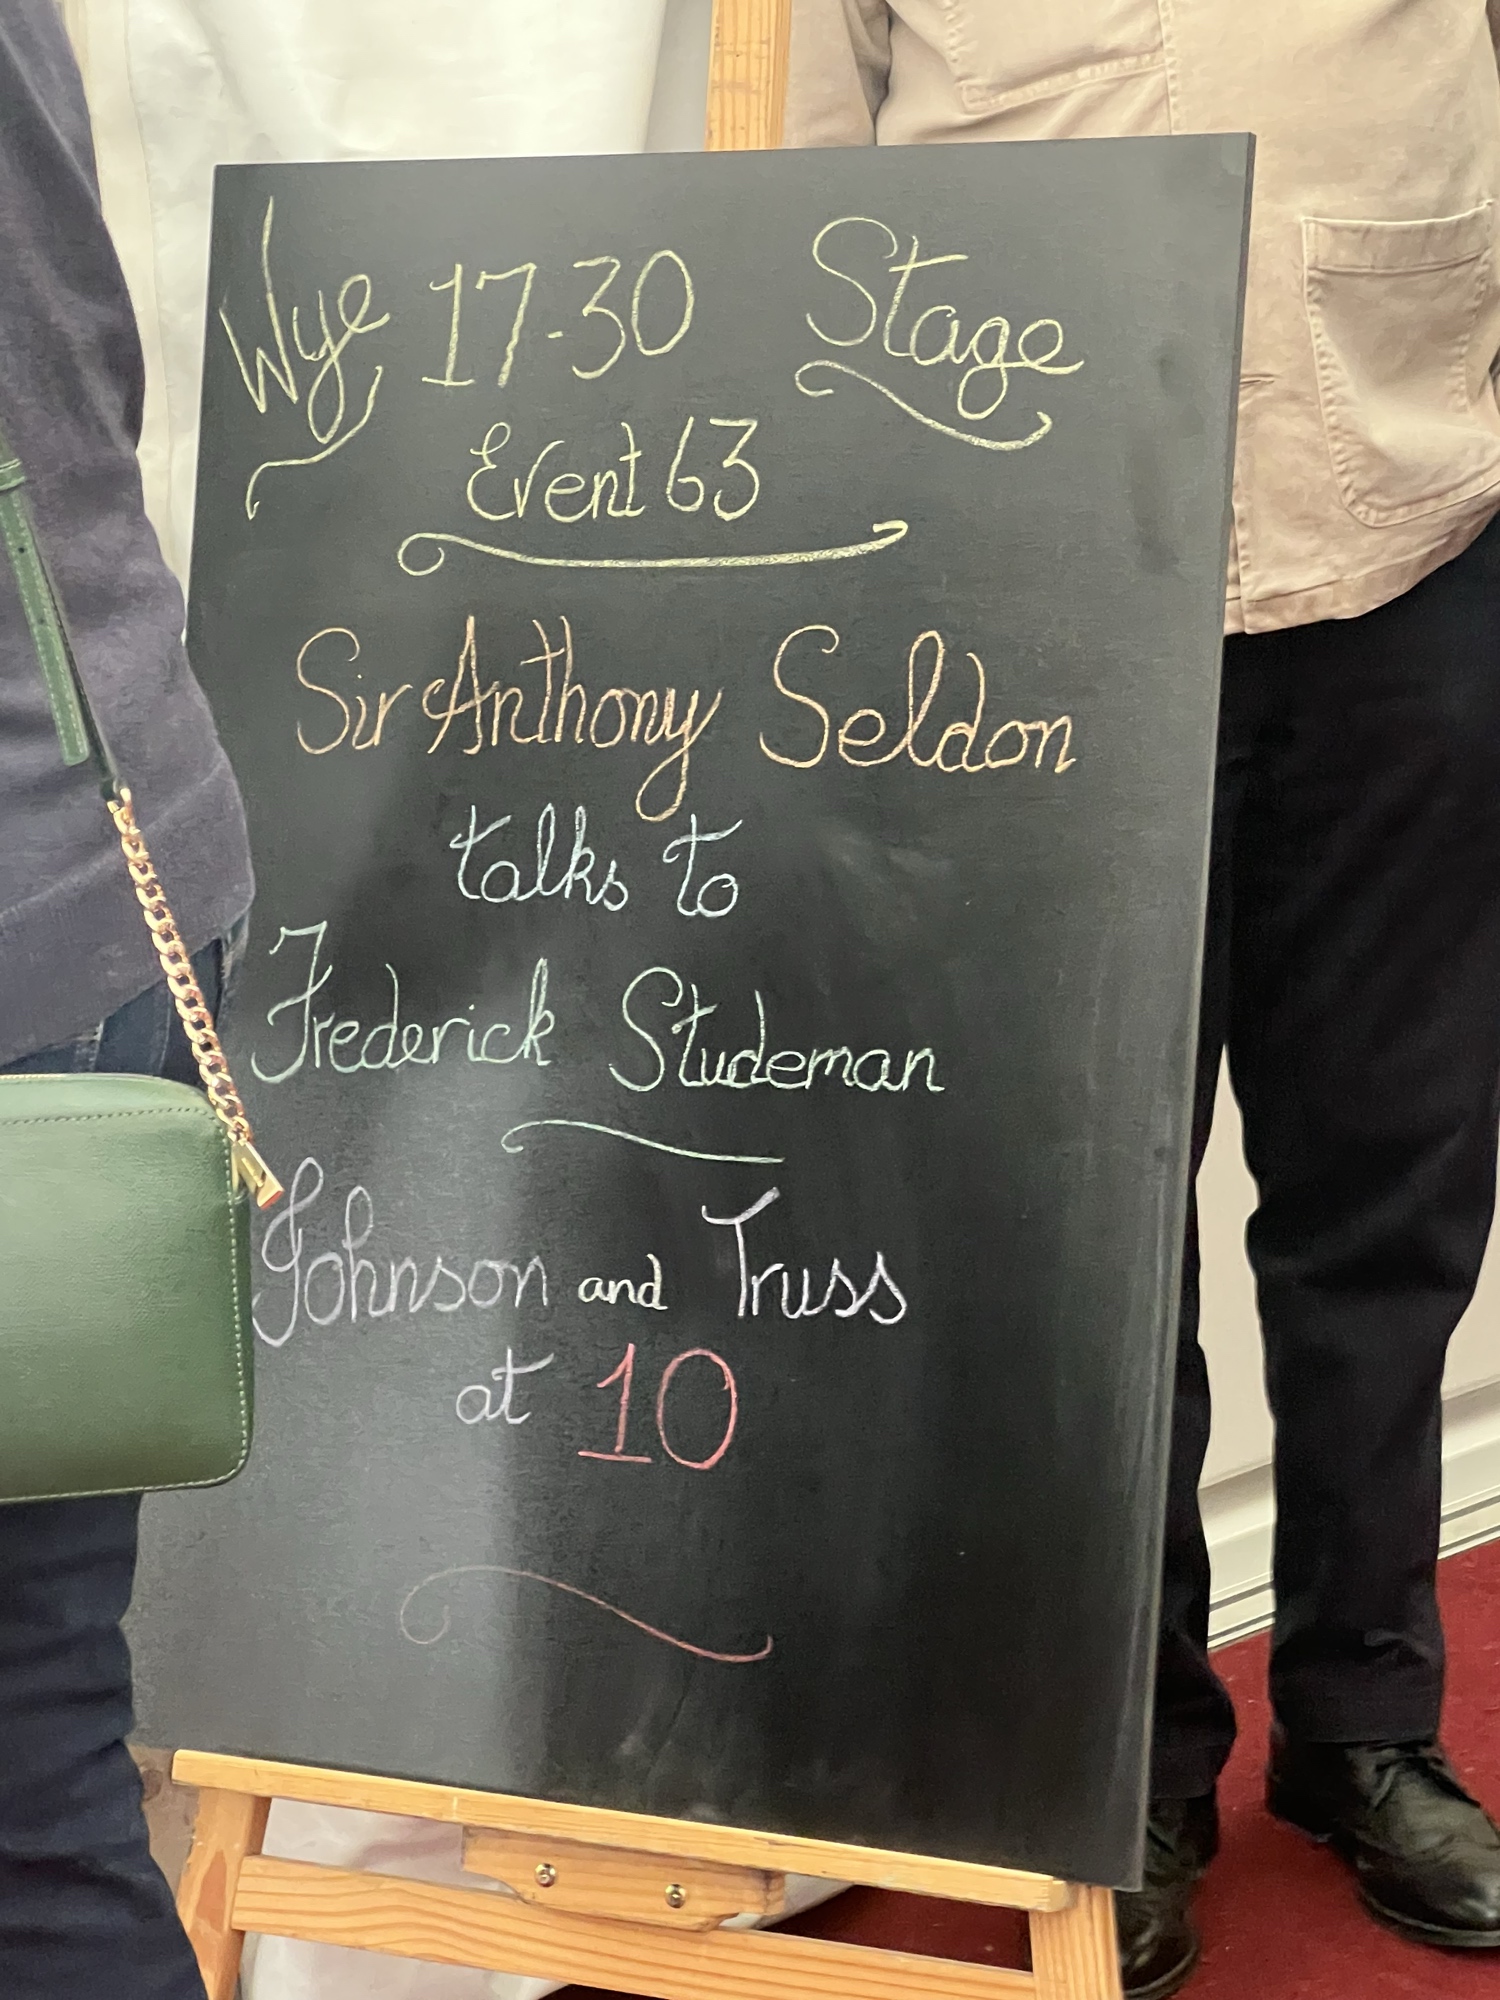 Wye 17-30 Stage
Event 63
Sir Anthony Seldon
talks to
Frederick Studeman
Johnson and Truss
at 10